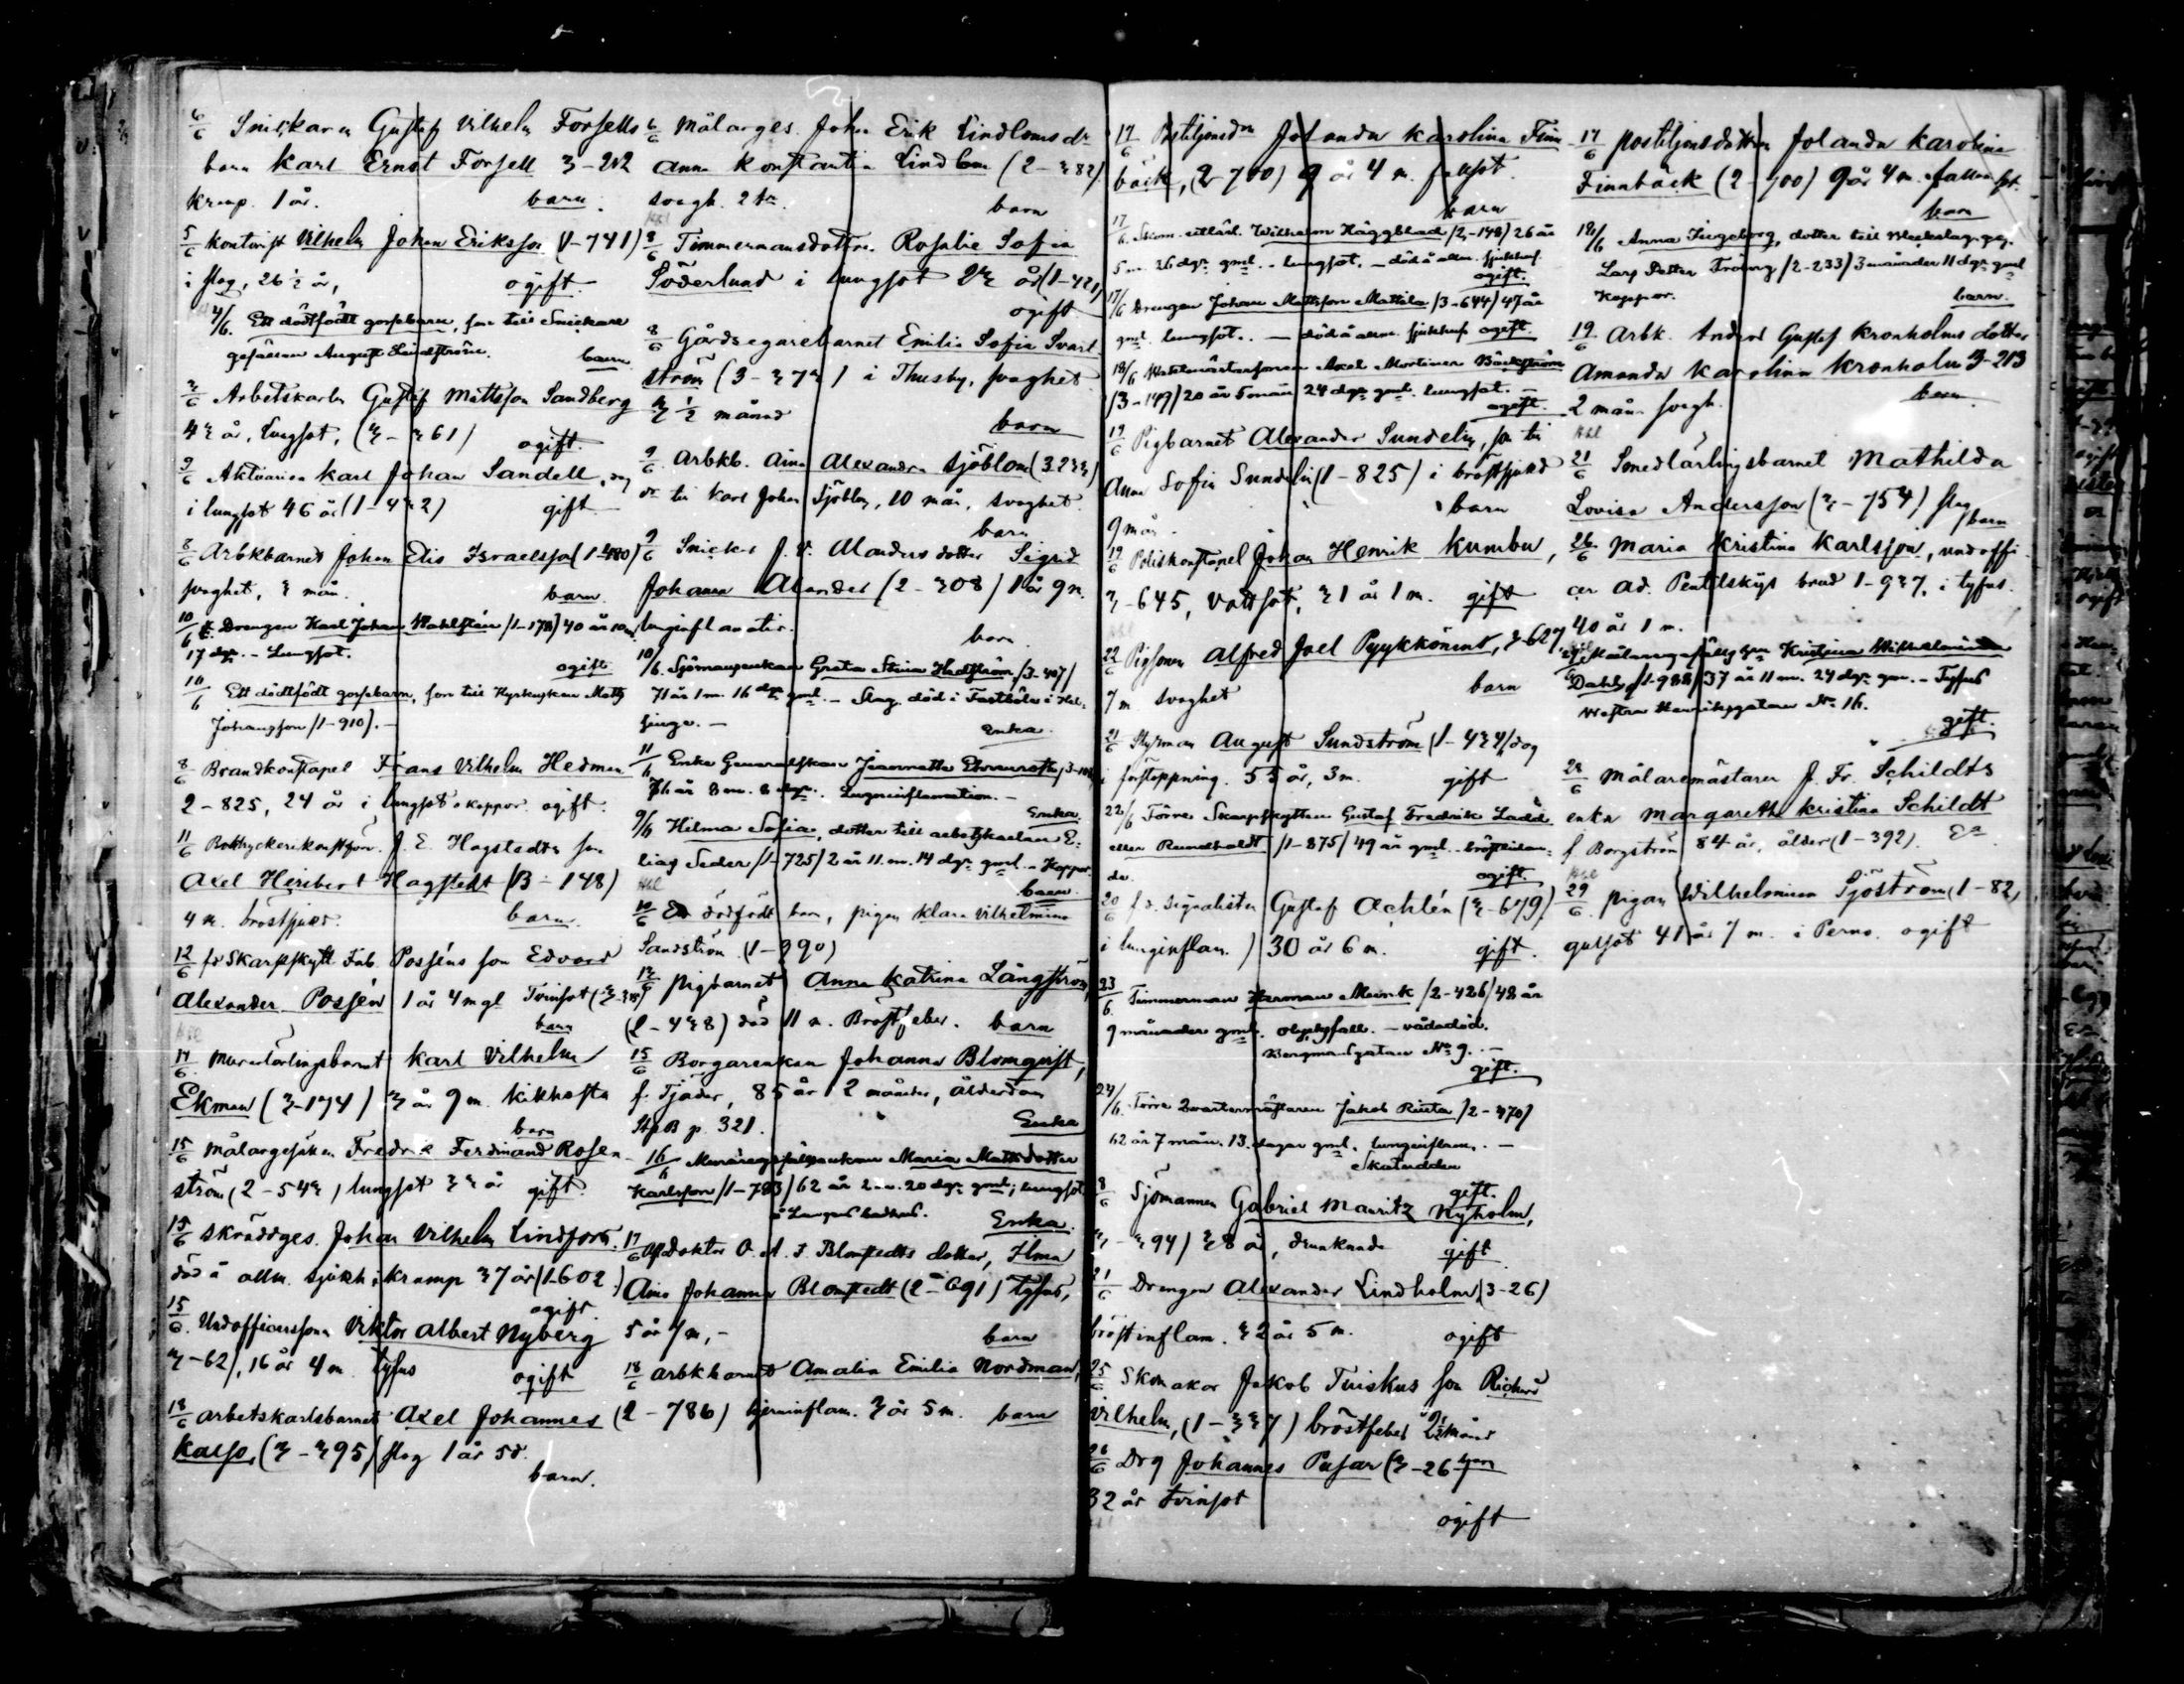 6/6 Snickaren Gustaf Vilhelm Forsells
barn Karl Ernst Forsell 3-212
kramp. 1 år. barn.
5/6 Kontorist Vilhelm Johan Eriksson (1-741)
i slag, 26 1/2 år, ogift.
4/6. Ett dödfödt gossebarn, son till Snickare
gesällen August Lindström. barn
3/6 Arbetskarlen Gustaf Mattsson Sandberg
43 år, lungsot, (3-361) ogift.
9/6 Aktuarien Karl Johan Sandell, dog
i lungsot 46 år (1-432) gift.
8/6 Arbkbarnet Johan Elis Israelsson (1-480)
svaghet, 3 mån. barn.
10/6 Drengen Karl Johan Wahlstén /1-178/ 40 år 10 m.
17 dgr. - Lungsot. ogift
10/6 Ett dödfödt gossebarn, son till Matts
Johansson /1-910/. -
8/6 Brandkonstapel Frans Vilhelm Hedman
2-825, 24 år i lungsot o koppor. ogift.
11/6 J. E. Hagstedts son
Axel Heribert Hagstedt (3-148)
4 m. bröstsjukd. barn.
12/6 fd Skarpskytt Posséns son Edvard
Alexander Possén 1 år 4 m gl Tvinsot
barn
14/6. Murarlärlingsbarnet Karl Vilhelm
Ekman (3-174) 3 år 9 m. kikhosta
barn
15/6 Målargesällen Fredrik Ferdinand Rosen-
ström (2-543) lungsot 33 år gift.
15/6 Skräddges. Johan Vilhelm Lindfors.
död å allm. sjukh. i kramp 37 år (1-602)
ogift.
15/6. Undofficerssonen Viktor Albert Nyberg
3-62), 16 år 4 m. tyfus ogift
18/6 arbetskarlsbarnet Axel Johannes
Kalso, (3-395) slag 1 år 5 d.
barn.
6/6 Målarges. Johan Erik Lindloms dr
Anna Konstantia Lindlom (2-382)
svagh. 2 tr. barn
8/6 Timmermansdottren Rosalie Sofia
Söderlund i lungsot 23 år (1-421)
ogift
8/6 Gårdsegarebarnet Emilia Sofia Svart-
ström (3-373) i Thusby, svaghet
3 1/2 månad barn
9/6. Arbkb. Aina Alexandra Sjöblom (3.233)
dr till Karl Johan Sjöblom, 10 mån, svaghet.
barn
9/6 Snickar J. V. Alanders dotter Sigrid
Johanna Alander (2-308) 1 år 9 m.
lunginflamation. barn
10/6. Sjömansenkan Greta Stina Hedström /3-407/
71 år 1 m. 16 dgr gml. - Slag, död i Fastböle i Hel-
singe. - Enka.
11/6 Enke Generalskan Jeannette Ehrnrooth
76 år 8 m. 8 dgr. Lunginflamation. -
Enka.
9/6 Hilma Sofia, dotter till arbetskarlen E-
lias Seder /1-725/ 2 år 11 m. 14 dgr gml. - Koppor
barn.
Ett dödfödt barn, pigan Klara Vilhelmina
Sandström (1-390)
13/6 Pigbarnet Anna Katrina Långström,
(2-438) död 11 m. Bröstfeber. barn
15/6 Borgarenkan Johanna Blomqvist,
f. Tjäder, 85 år 2 månader, ålderdom
p. 321. Enka
16/6 Murāregesällsenkan Maria Mattsdotter
Karlsson /1-783/ 62 år 2 m. 20 dgr gml; lungsot
Enka.
17/6 Doktor O. A. F. Blomstedts dotter, Ilma
Aino Johanna Blomstedt (2-691) tyfus,
5 år 7 m, - barn
18/6 arbkbarnet Amalia Emilia Nordman,
(2-786) hjerninflam. 3 år 5 m. barn
17/6 Postiljonsdn Jolanda Karolina Finn-
bäck, (2-700) 9 år 4 m. fallsot.
barn
17/6. Wilhelm Häggblad /2-148/ 26 år
5 m. 26 dgr gml. - lungsot. - död å allm. sjukhus.
ogift.
17/6 Drengen Johan Mattsson Mattila /3-644/ 47 år
gml. lungsot. - död å allm. sjukhus ogift.
18/6 Axel Mortimer Bäckström
/3-149/ 20 år 5 mån 24 dgr gml. lungsot. -
ogift.
19/6 Pigbarnet Alexander Sundelin, son till
Anna Sofia Sundelin (1-825) i bröstsjukd
9 mån. barn
19/6 Poliskonstapel Johan Henrik Kumbu,
3-645, vattsot, 31 år 1 m. gift
22/6 Pigsonen Alfred Joel Pyykkönens, 3-627,
7 m. svaghet barn
21/6 Styrman August Sundström (1-434) dog
i förstoppning. 55 år, 3 m. gift
22/6 Förre Skarpskytten Gustaf Fredrik Ladd
eller Rundholdt /1-875/ 49 år gml. - bröstlidan-
de. ogift.
20/6 f.d. Signalisten Gustaf Achlén (3-679)
i lunginflam.) 30 år 6 m. gift.
23/6. Timmerman Herman Meink /2-426/ 48 år
9 månader gml. olycksfall. - vådadöd.
Bergmansgatan No 9. -
gift.
24/6. Förre Qvartermästaren Jakob Rinta /2-470/
62 år 7 mån. 13 dagar gml. lunginflam. -
Skatudden
gift.
8/6 Sjömannen Gabriel Mauritz Nyholm,
3-394) 38 år, drunknade gift
21/6 Drengen Alexander Lindholm (3-26)
bröstinflam. 32 år 5 m. ogift
25/6 Skomakar Jakob Tuiskus son Richard
Vilhelm, (1-337) bröstfeber
26/6 Drg Johannes Pusar (3-26 barn
32 år tvinsot
ogift
17/6 postiljonsdottren Jolanda Karolina
Finnbäck (2-700) 9 år 4 m. fallan sot.
barn
18/6 Anna Ingeborg, dotter till Bleckslag. ges.
Lars Petter Fröberg /2-233/ 3 månader 11 dgr gml
Koppor. barn.
19/6 Arbk. Anders Gustaf Kronholms dotter
Amanda Karolina Kronholm 3-213
2 mån. svagh. barn
21/6 Smedlärlingsbarnet Mathilda
Lovisa Andersson (3-754) slag
barn
26/6 Maria Kristina Karlsson, undoffi-
cer Ad. Pentelskijs brud 1-937, i tyfus.
40 år 1 m.
Målaregesällsfrun Kristina Wilhelmina
Dahl, /1-988/ 37 år 11 m. 24 dgr gm. - Tyfus
Westra Henriksgatan No 16.
gift.
28/6 Målaremästaren J. Fr. Schildts
enka Margaretha Kristina Schildt
f. Borgström 84 år, ålder (1-392). Ea
29/6. pigan Wilhelmina Sjöström (1-82,
gulsot 41 år 7 m. i Perno. ogift